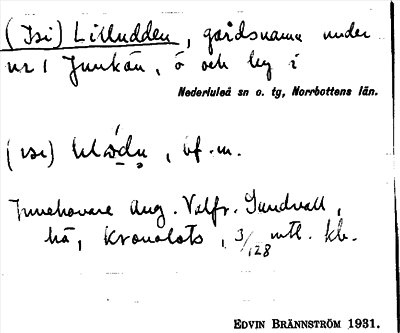 (Isi) Lilludden, gårdsnamn under
nr 1 Junkön, ö och by i
Nederluleå sn o. tg, Norrbottens län.
(isi) , bf. m.
Innehavare Aug. Valfr. Sundvall,
hå, Kronolots, 3/128 mtl. kb.
EDVIN BRÄNNSTRÖM 1931.